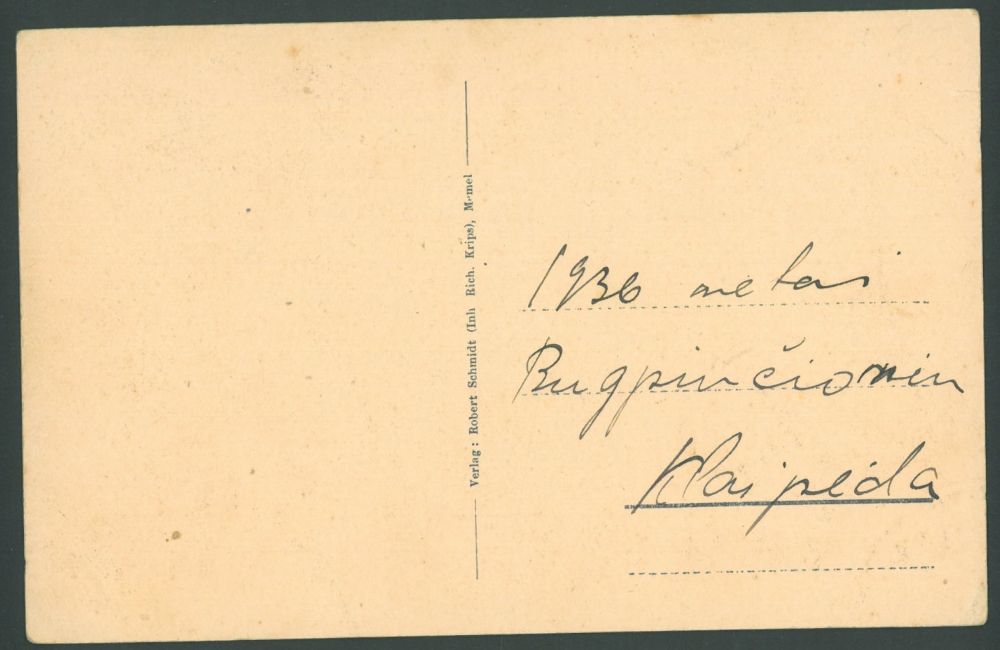 Verlag: Robert Schmidt (Inh Rich. Krips), Memel
1936 metai
Rugpiučio min
Klaipėda